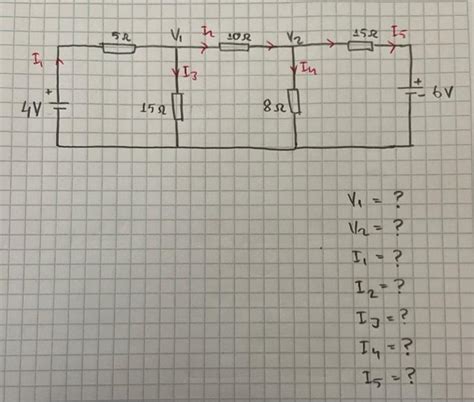 5Ω V₁ I₂ 10Ω V₂ 15Ω I₅
I₁ I₃ I₄
+ 4V 15Ω 8Ω + - 6V
V₁ = ?
V₂ = ?
I₁ = ?
I₂ = ?
I₃ = ?
I₄ = ?
I₅ = ?